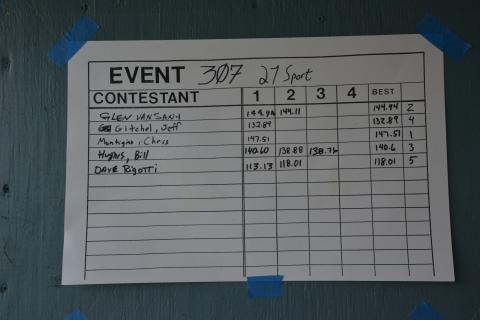 EVENT 307 27 Sport
CONTESTANT 1 2 3 4 BEST
GLEN VANSANT 144.94 144.11 144.94 2
Gitchel, Jeff 132.89 132.89 4
Chris 147.51 147.51 1
Hughs, Bill 140.60 138.88 138.76 140.6 3
DAVE Bigotti 113.13 118.01 118.01 5